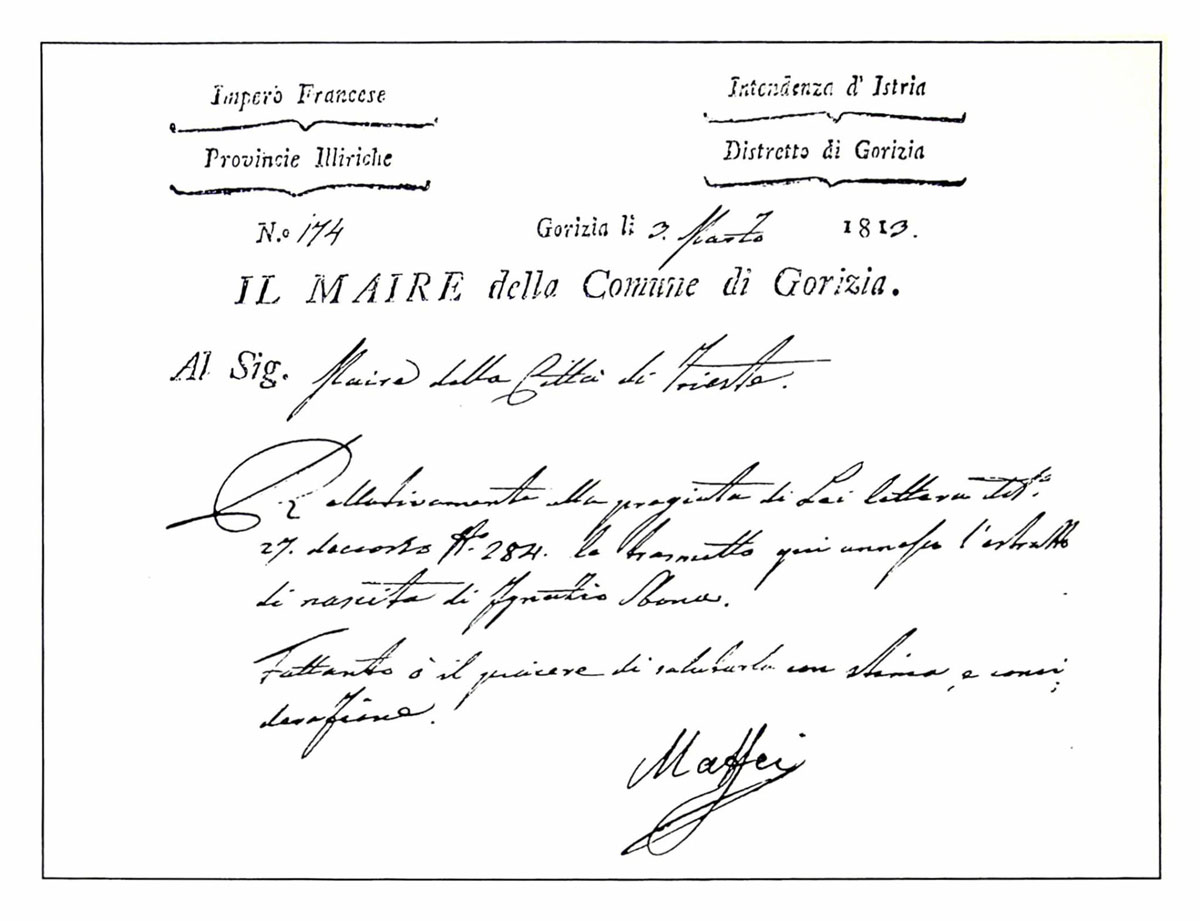 Impero Francese
Intendenza d' Istria
Provincie Illiriche
Distretto di Gorizia
N.º 174
Gorizia li 3. Marzo 1813.
IL MAIRE della Comune di Gorizia.
Al Sig. Maire della Città di Trieste.
Rellativamente alla pregiata di Lei lettera
27. decorso N.º 284. le trasmetto qui annesso l'estratto
di nascita di Ignazio
Frattanto ò il piacere di salutarla con stima, e consi,
derazione.
Maffei